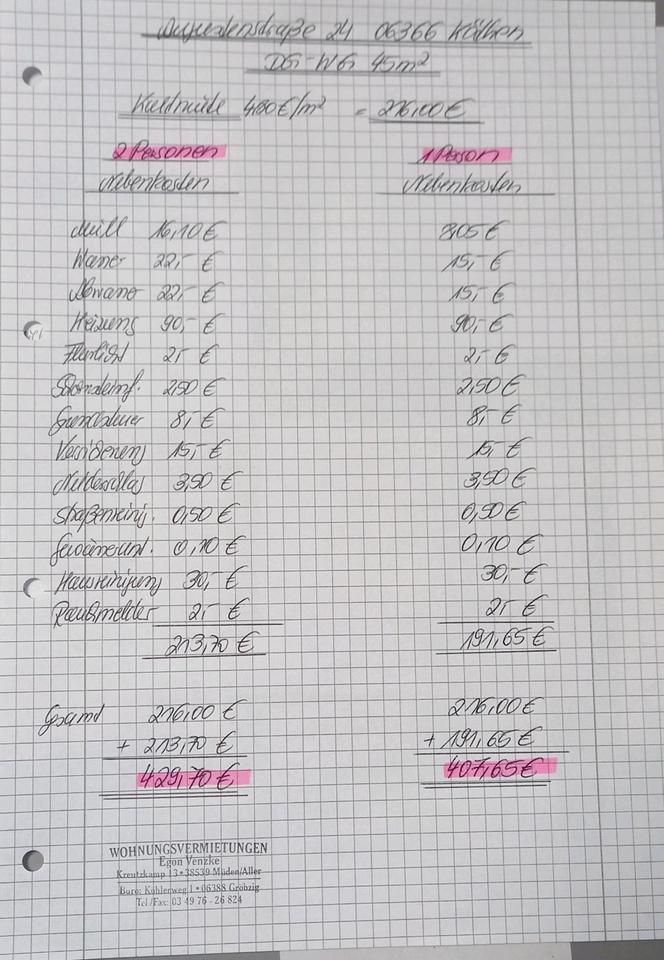 Augustenstraße 24 06366 Köthen
DG-WG 45m²
Kaltmiete 4,80 €/m² = 216,00 €
2 Personen 1 Person
Nebenkosten Nebenkosten
Müll 16,10 € 8,05 €
Wasser 22,- € 15,- €
Abwasser 22,- € 15,- €
Heizung 90,- € 90,- €
Flurlicht 2,- € 2,- €
2,50 € 2,50 €
Grundsteuer 8,- € 8,- €
Versicherung 15,- € 15,- €
Niederschlag 3,50 € 3,50 €
Straßenreinig. 0,50 € 0,50 €
0,10 € 0,10 €
Hausreinigung 30,- € 30,- €
Rauchmelder 2,- € 2,- €
213,70 € 191,65 €
Gesamt 216,00 € 216,00 €
+ 213,70 € + 191,65 €
429,70 € 407,65 €
WOHNUNGSVERMIETUNGEN
Egon Venzke
Kreutzkamp 13 • 38539 Müden/Aller
Büro: Köhlerweg 1 • 06388 Gröbzig
Tel/Fax: 03 49 76 - 26 824